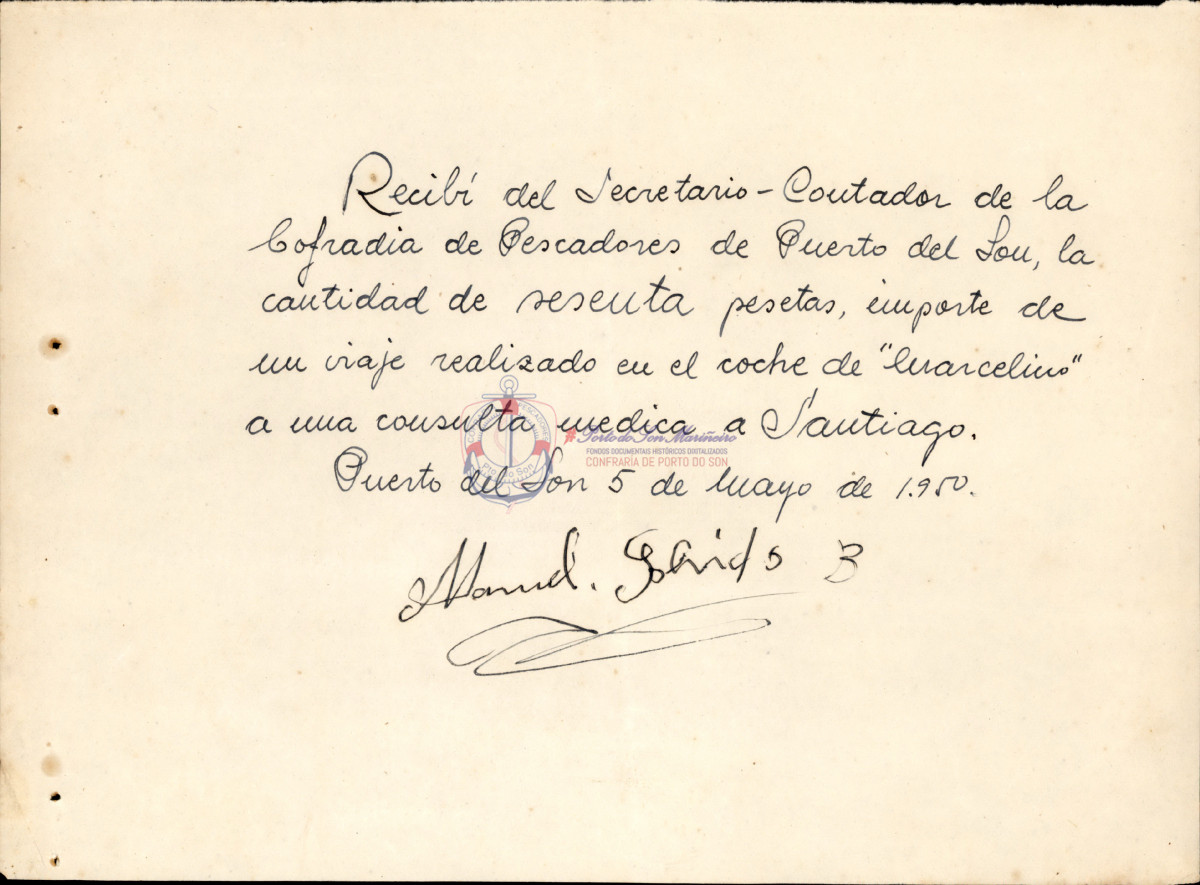 Recibí del Secretario-Contador de la
Cofradia de Pescadores de Puerto del Son, la
cantidad de sesenta pesetas, importe de
un viaje realizado en el coche de "Marcelino"
a una consulta medica a Santiago.
#Porto do Son Mariñeiro
FONDOS DOCUMENTAIS HISTÓRICOS DIXITALIZADOS
CONFRARÍA DE PORTO DO SON
Puerto del Son 5 de Mayo de 1.950.
Manuel.